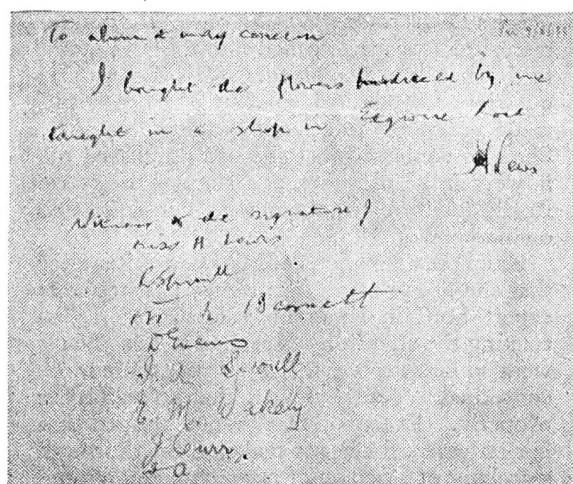 To whom it may concern
I bought the flowers produced by me
tonight in a shop in Edgware Road
H Lewis
Witness to the signature of
Miss H Lewis
M. L. Barnett
D Evans
E. M. Wakely
J Curr.